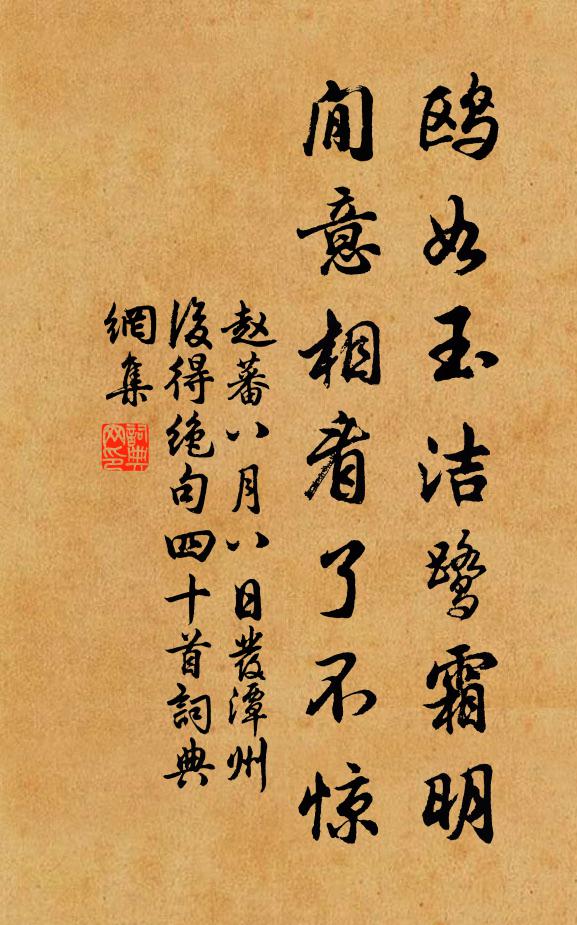 鸥如玉洁鹭霜明
閒意相看了不惊
赵蕃八月八日發潭州
後得绝句四十首詞典
網集
詞典
网印